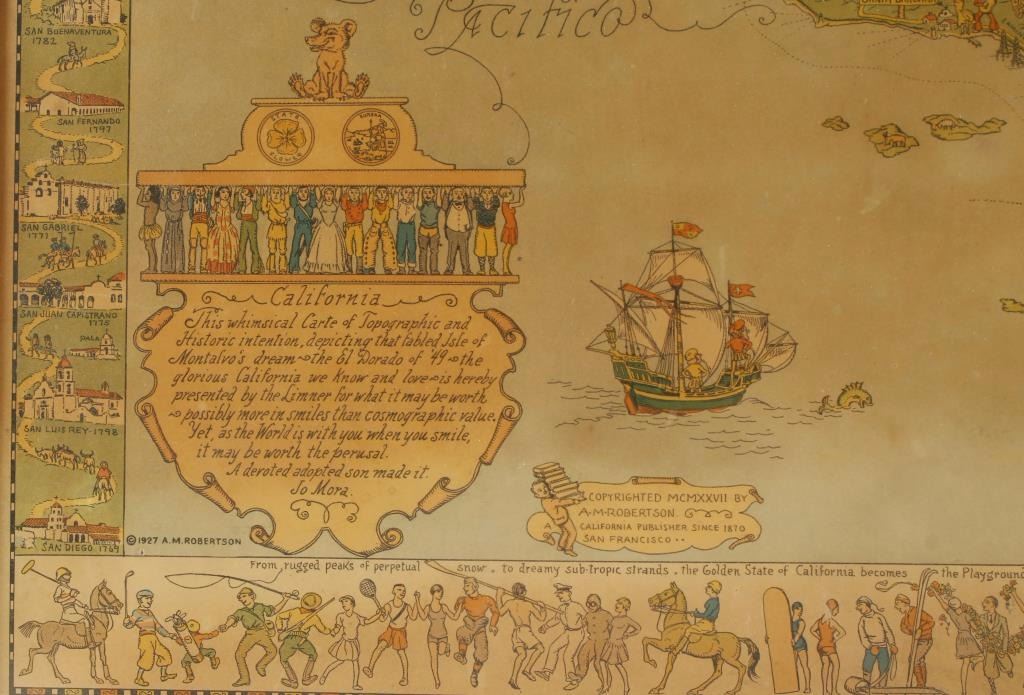 PACIFICO
SAN BUENAVENTURA
1782
SAN FERNANDO
1797
SAN GABRIEL
1771
SAN JUAN CAPISTRANO
1775
PALA
SAN LUIS REY-1798
SAN DIEGO 1769
STATE
FLOWER
EUREKA
California
This whimsical Carte of Topographic and
Historic intention, depicting that fabled Isle of
Montalvo's dream~the El Dorado of '49~the
glorious California we know and love~is hereby
presented by the Limner for what it may be worth
~possibly more in smiles than cosmographic value.
Yet, as the World is with you when you smile,
it may be worth the perusal.
A devoted adopted son made it.
Jo Mora.
©1927 A.M.ROBERTSON
COPYRIGHTED MCMXXVII BY
A·M·ROBERTSON.
A CALIFORNIA PUBLISHER SINCE 1870
SAN FRANCISCO··
From rugged peaks of perpetual snow . to dreamy sub-tropic strands . the Golden State of California becomes the Playground